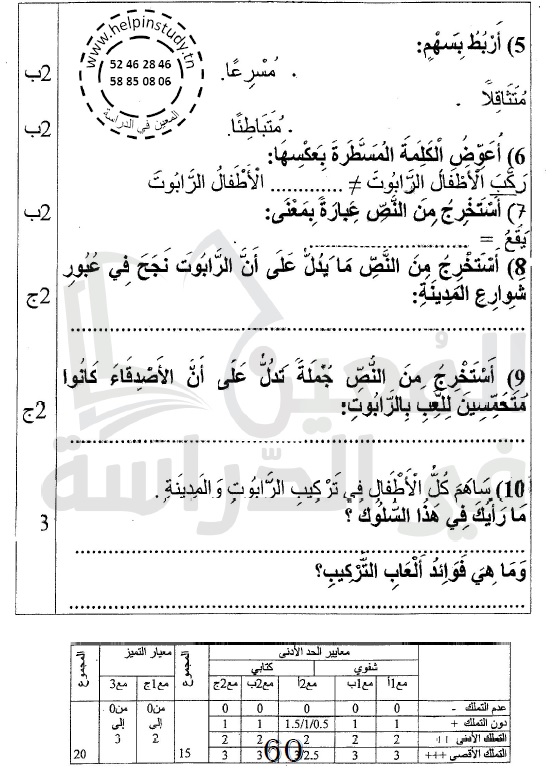 www.helpinstudy.tn
52 46 28 46
58 85 08 06
المعين في الدراسة
5) أَرْبُطُ بِسَهْمٍ:
. مُسْرِعًا.
2ب
مُتَثَاقِلًا .
. مُتَبَاطِئًا.
2ب
6) أُعَوِّضُ الْكَلِمَةَ الْمُسَطَّرَةَ بِعَكْسِهَا:
رَكَّبَ الْأَطْفَالُ الرَّابُوتَ ≠ ............ الْأَطْفَالُ الرَّابُوتَ
7) أَسْتَخْرِجُ مِنَ النَّصِّ عِبَارَةً بِمَعْنَى:
2ب
يَقَعُ = ..........................
8) أَسْتَخْرِجُ مِنَ النَّصِّ مَا يَدُلُّ عَلَى أَنَّ الرَّابُوت نَجَحَ فِي عُبُورِ
شَوَارِعِ المَدِينَةِ:
2ج
9) أَسْتَخْرِجُ مِنَ النَّصِّ جُمْلَةً تَدُلُّ عَلَى أَنَّ الأَصْدِقَاءَ كَانُوا
مُتَحَمِّسِينَ لِلَّعِبِ بِالرَّابُوتِ:
2ج
10) سَاهَمَ كُلُّ الْأَطْفَالِ فِي تَرْكِيبِ الرَّابُوتِ وَالمَدِينَةِ .
مَا رَأْيُكَ فِي هَذَا السُّلُوكِ ؟
3
وَمَا هِيَ فَوَائِدُ أَلْعَابِ التَّرْكِيبِ؟
المعين
في الدراسة
معايير الحد الأدنى
معيار التميز
المجموع
المجموع
شفوي
كتابي
مع1أ مع1ب مع2أ مع2ب مع2ج
مع1ج مع3
عدم التملك - 0 0 0 0 0 من0 من0
دون التملك + 1 1 1.5/1/0.5 1 1 إلى إلى
التملك الأدنى ++ 2 2 2 2 2 2 3
التملك الأقصى +++ 3 3 3/2.5 3 3 15 20
60